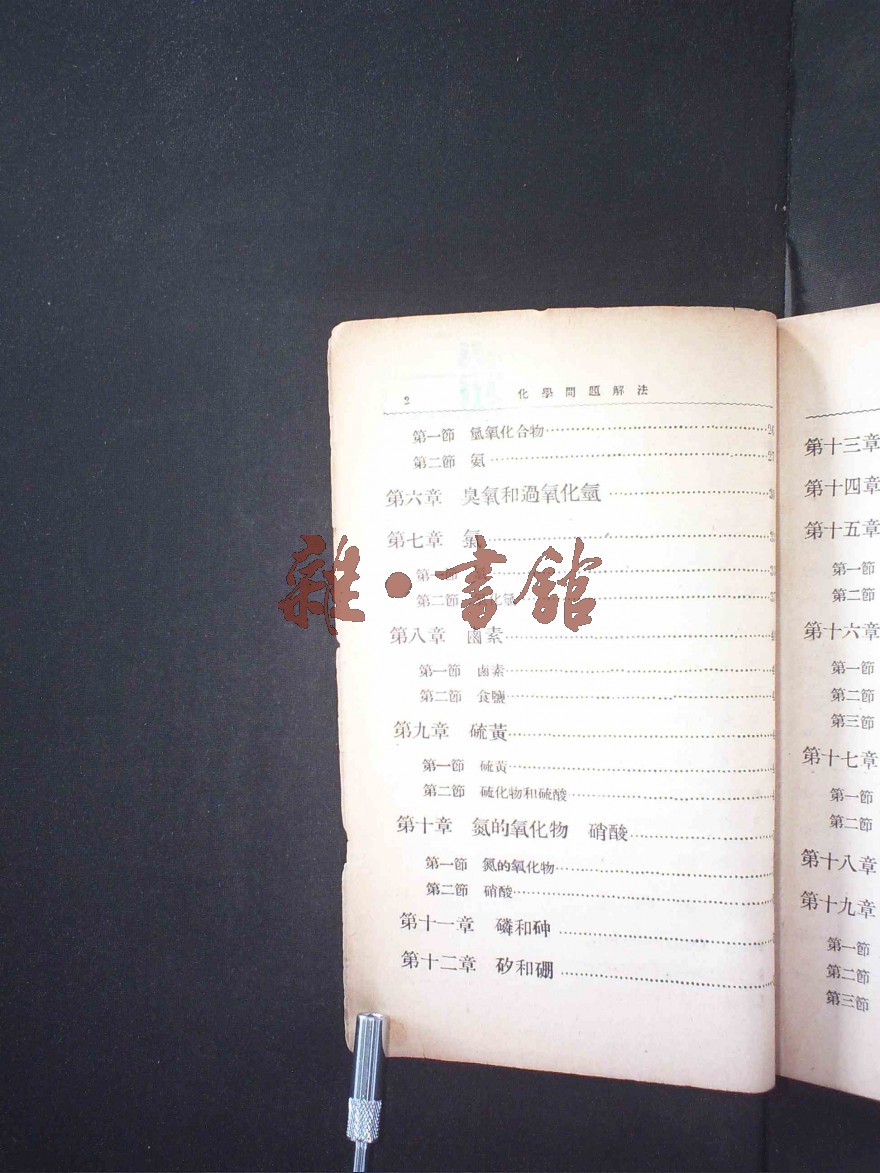 2 化學問題解法
第一節 氫氧化合物 26
第二節 氨 27
第六章 臭氧和過氧化氫 30
第七章 氯
第一節
第二節
雜·書館
第八章 鹵素
第一節 鹵素
第二節 食鹽
第九章 硫黃
第一節 硫黃
第二節 硫化物和硫酸
第十章 氮的氧化物 硝酸
第一節 氮的氧化物
第二節 硝酸
第十一章 磷和砷
第十二章 矽和硼
第十三章
第十四章
第十五章
第一節
第二節
第十六章
第一節
第二節
第三節
第十七章
第一節
第二節
第十八章
第十九章
第一節
第二節
第三節